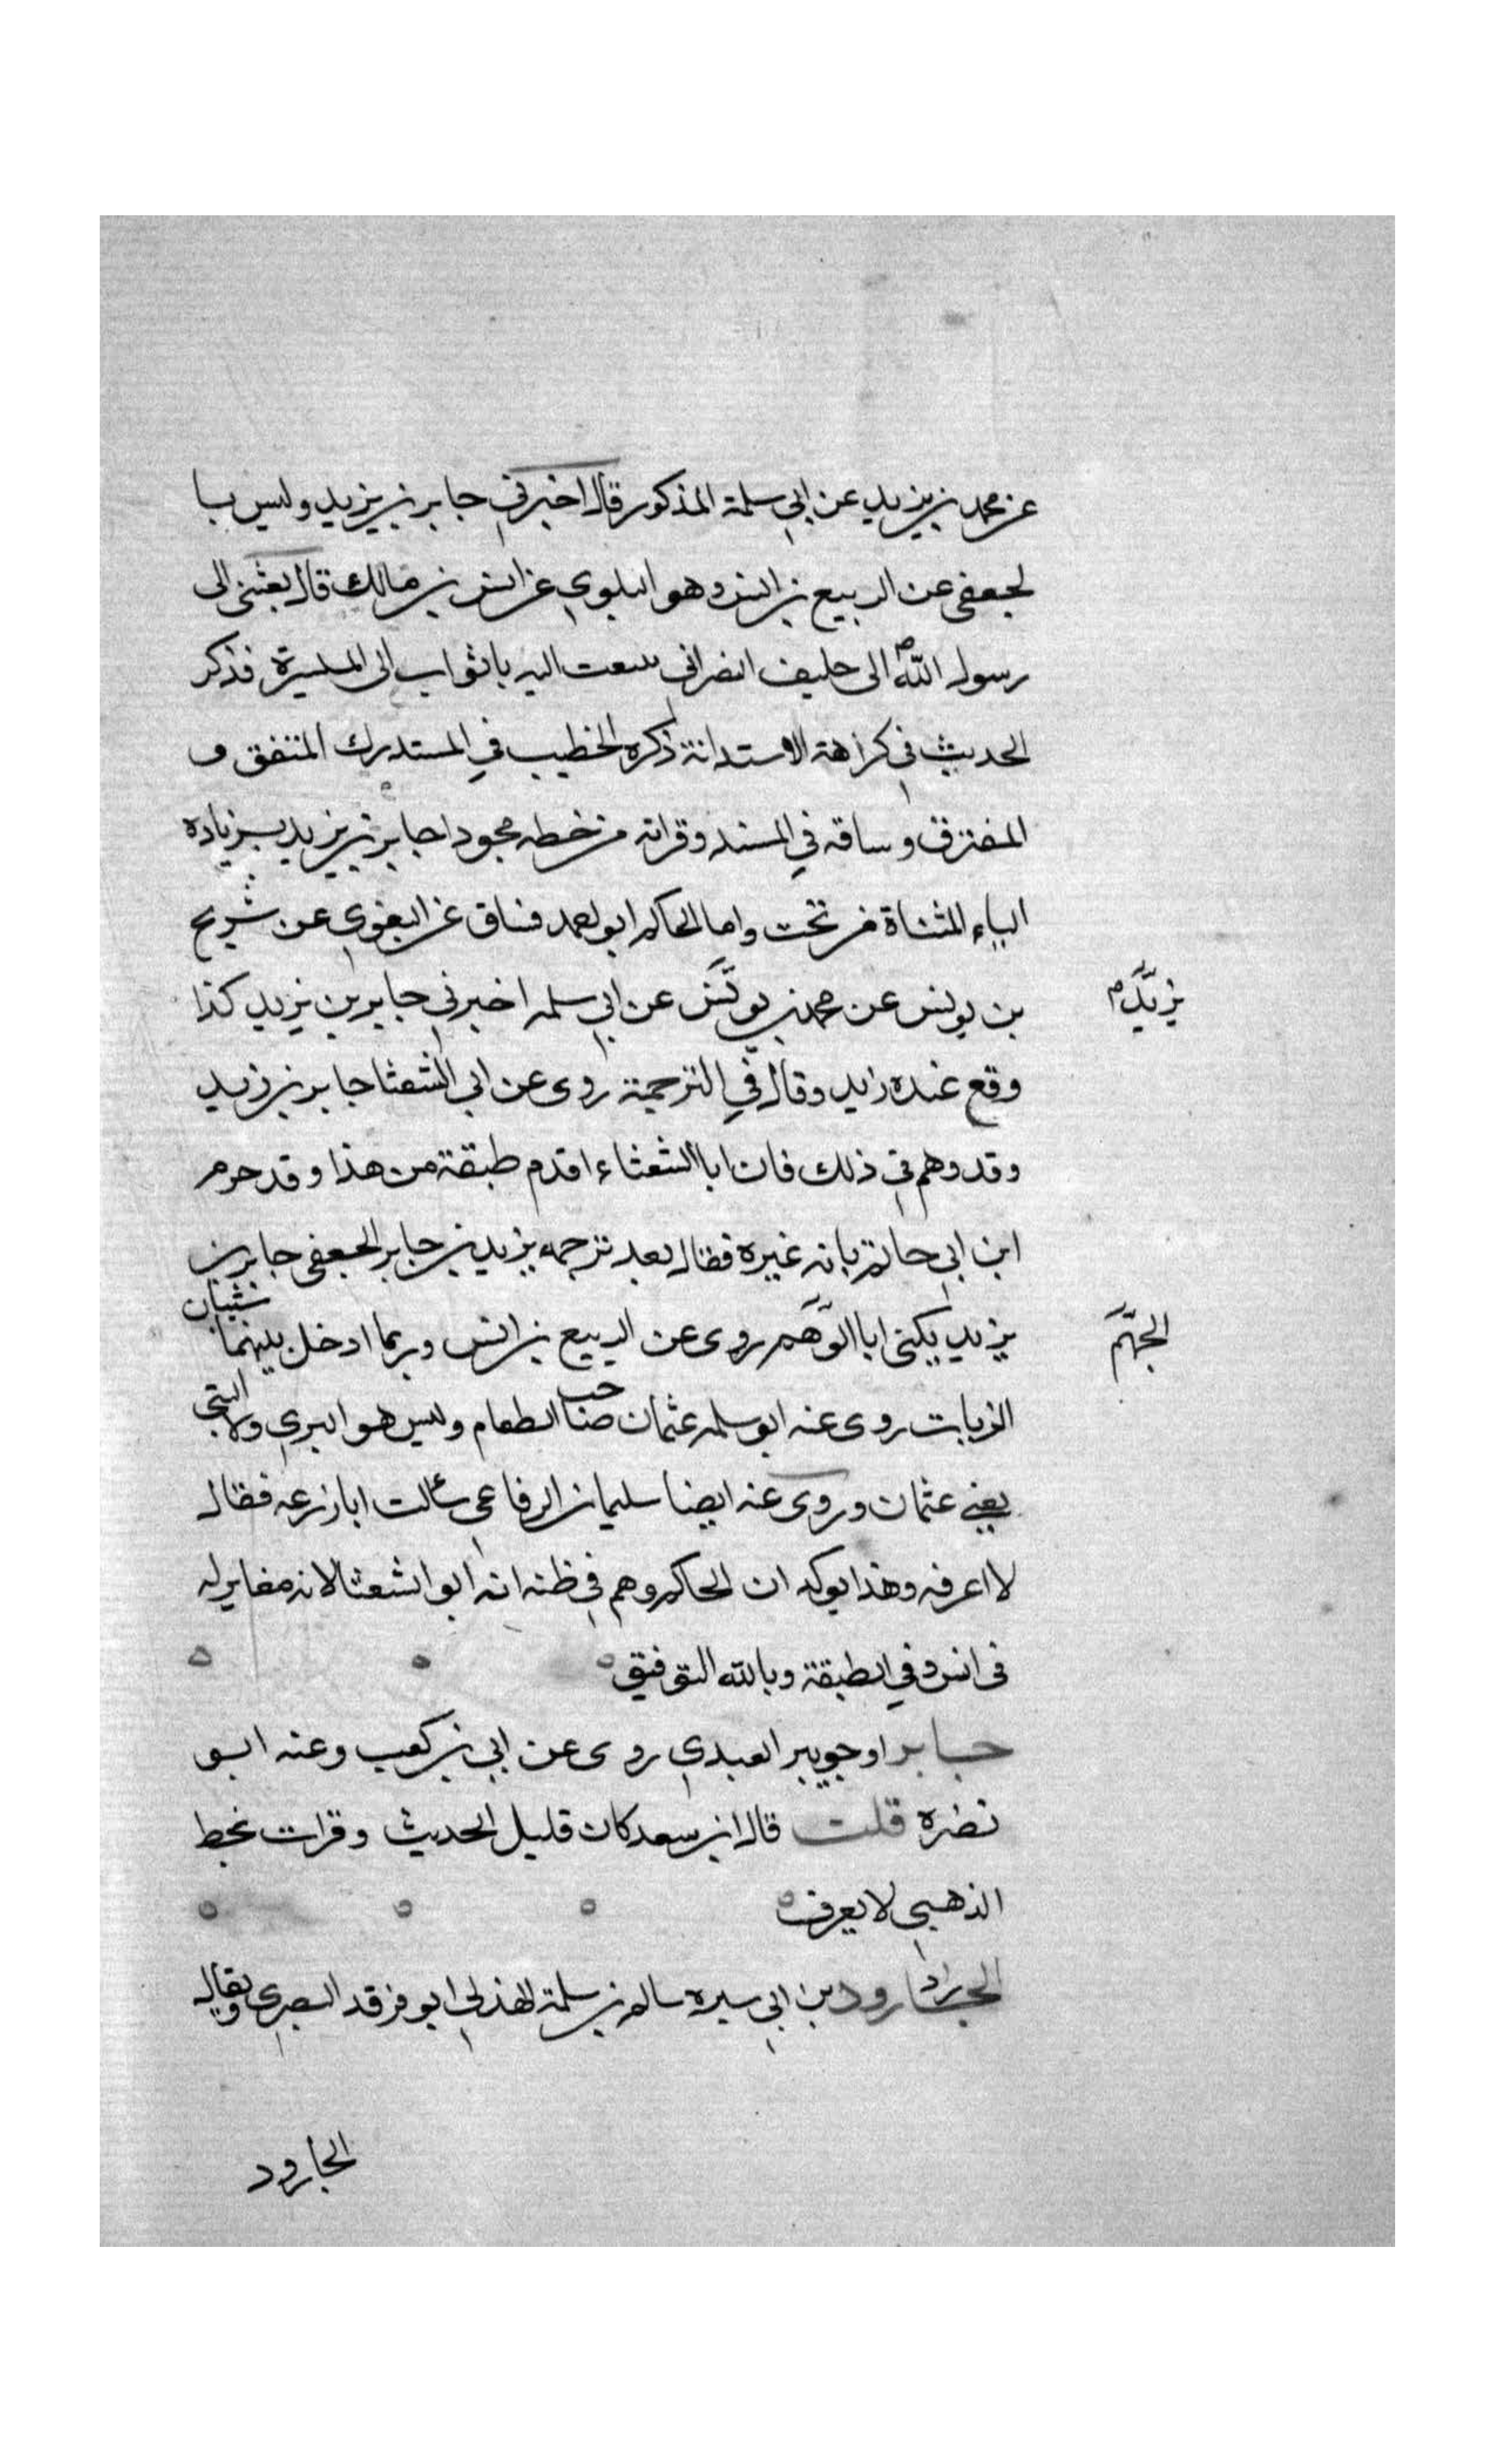 عن محمد بن يزيد عن ابي سلمة المذكور قال اخبرني جابر بن يزيد وليس با
لجعفي عن الربيع بن انس وهو البلوي عن انس بن مالك قال بعثني الى
رسول الله ص الى حليف النصراني ليبعث اليه باثواب الى الميسرة فذكر
الحديث في كراهة الاستدانة ذكره الخطيب في المستدرك المتفق و
المفترق وساقه في المسند وقراته من خطه مجودا جابر بن يزيد بزيادة
الياء المثناة من تحت واما الحاكم ابو احمد فساق عن البغوي عن شريح
بن يونس عن محمد بن يونس عن ابي سلمه اخبرني جابر بن يزيد كذا
يزيد م
وقع عنده زايد وقال في الترجمة روى عن ابي الشعثا جابر بن زيد
وقد وهم في ذلك فان ابا الشعثاء اقدم طبقة من هذا وقد حرم
ابن ابي حاتم بانه غيره فقال بعد ترجمه يزيد بن جابر الجعفي جابر بن
يزيد يكنى ابا الوهم روى عن الربيع بن انس وربما ادخل بينهما شيبان
الجهم
الزيات روى عنه ابو سلمه عثمان صاحب الطعام وليس هو البري ولا البتي
يعني عثمان وروى عنه ايضا سليمان الرفاعي سالت ابا زرعه فقال
لا اعرفه وهذا يوكد ان الحاكم وهم في ظنه انه ابو الشعثا لانه مغاير له
في انس وفي الطبقة وبالله التوفيق
جابر او جويبر العبدي روى عن ابي بن كعب وعنه ابو
نضره قلت قال ابن سعد كان قليل الحديث وقرات بخط
الذهبي لا يعرف
الجارود بن ابي سبره سالم بن سلمة الهذلي ابو فرقد البصري ويقال
الجارود